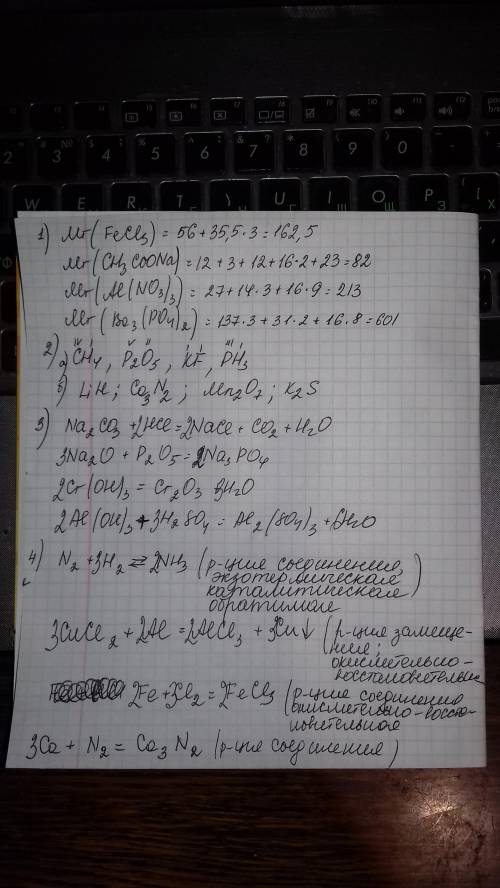 1) Mr(FeCl3) = 56+35,5·3=162,5
Mr(CH3COONa)=12+3+12+16·2+23=82
Mr(Al(NO3)3)= 27+14·3+16·9=213
Mr(Ba3(PO4)2)=137·3+31·2+16·8=601
2) a) CH4, P2O5, KF, PH3
IV I V I I III I
б) LiH; Ca3N2; Mn2O7; K2S
3) Na2CO3 +2HCl=2NaCl+CO2+H2O
3Na2O+P2O5=2Na3PO4
2Cr(OH)3 = Cr2O3 3H2O
2Al(OH)3+3H2SO4=Al2(SO4)3+6H2O
4) N2+3H2⇄2NH3 (р-ция соединения,
экзотермическая
каталитическая
обратимая)
3CuCl2+2Al=2AlCl3+3Cu↓ (р-ция замеще-
ния;
окислительно-
восстановительная
2Fe+3Cl2=2FeCl3 (р-ция соединения
окислительно-восста-
новительная
3Ca+N2=Ca3N2 (р-ция соединения)